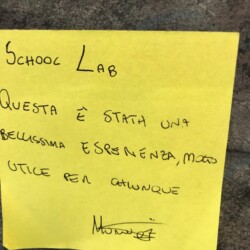 SCHOOL LAB
QUESTA È STATA UNA
BELLISSIMA ESPERIENZA, MOLTO
UTILE PER CHIUNQUE